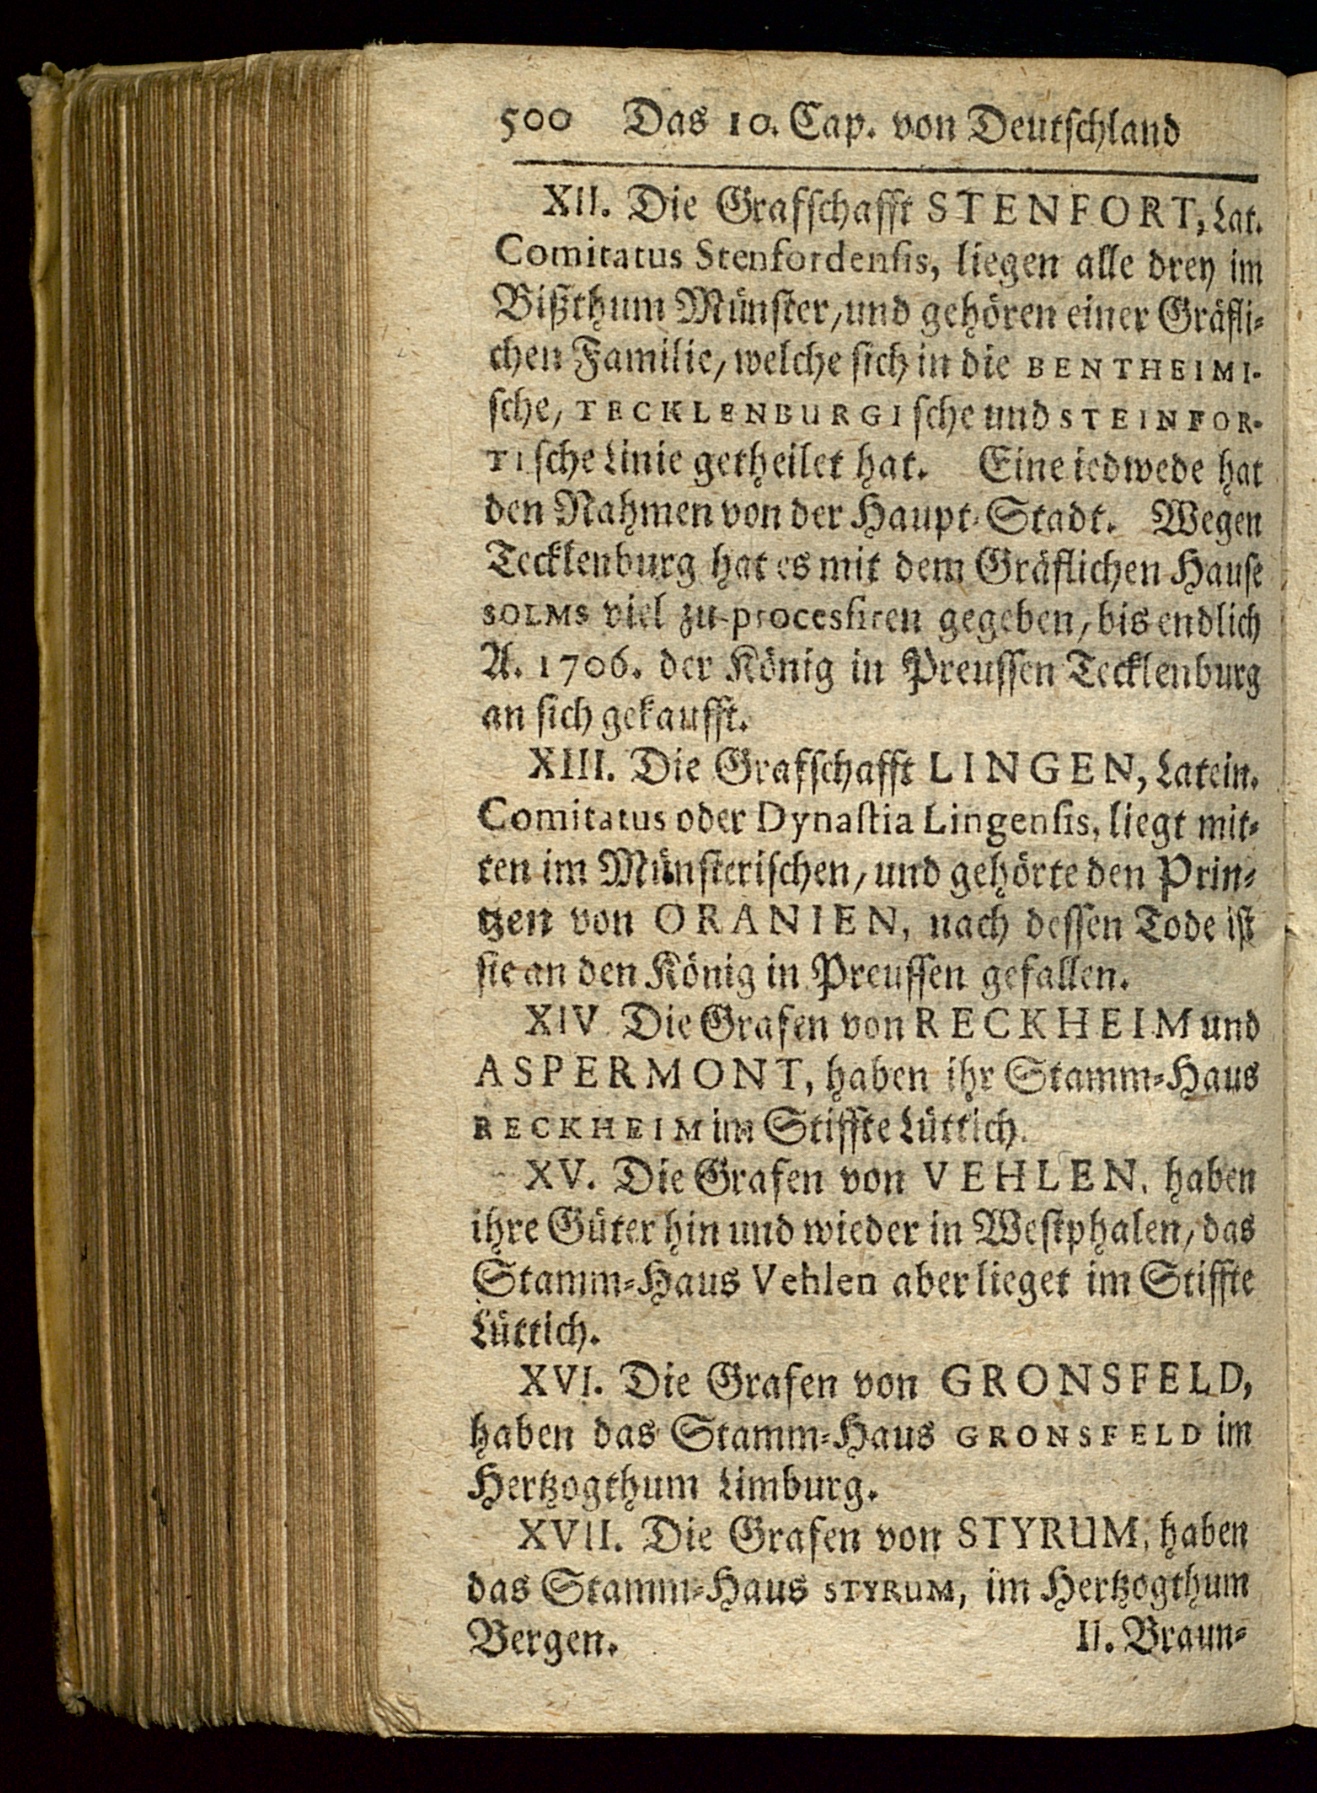 500 Das 10. Cap. von Deutschland
XII. Die Grafschafft STENFORT, Lat.
Comitatus Stenfordensis, liegen alle drey im
Bißthum Münster/ und gehören einer Gräfli-
chen Familie/ welche sich in die BENTHEIMI-
sche/ TECKLENBURGIsche und STEINFOR-
TIsche Linie getheilet hat. Eine iedwede hat
den Nahmen von der Haupt-Stadt. Wegen
Tecklenburg hat es mit dem Gräflichen Hause
SOLMS viel zu processiren gegeben/ bis endlich
A. 1706. der König in Preussen Tecklenburg
an sich gekaufft.
XIII. Die Grafschafft LINGEN, Latein.
Comitatus oder Dynastia Lingensis, liegt mit-
ten im Münsterischen/ und gehörte den Prin-
tzen von ORANIEN, nach dessen Tode ist
sie an den König in Preussen gefallen.
XIV. Die Grafen von RECKHEIM und
ASPERMONT, haben ihr Stamm-Haus
RECKHEIM im Stiffte Lüttich.
XV. Die Grafen von VEHLEN, haben
ihre Güter hin und wieder in Westphalen/ das
Stamm-Haus Vehlen aber lieget im Stiffte
Lüttich.
XVI. Die Grafen von GRONSFELD,
haben das Stamm-Haus GRONSFELD im
Hertzogthum Limburg.
XVII. Die Grafen von STYRUM, haben
das Stamm-Haus STYRUM, im Hertzogthum
Bergen. II. Braun-